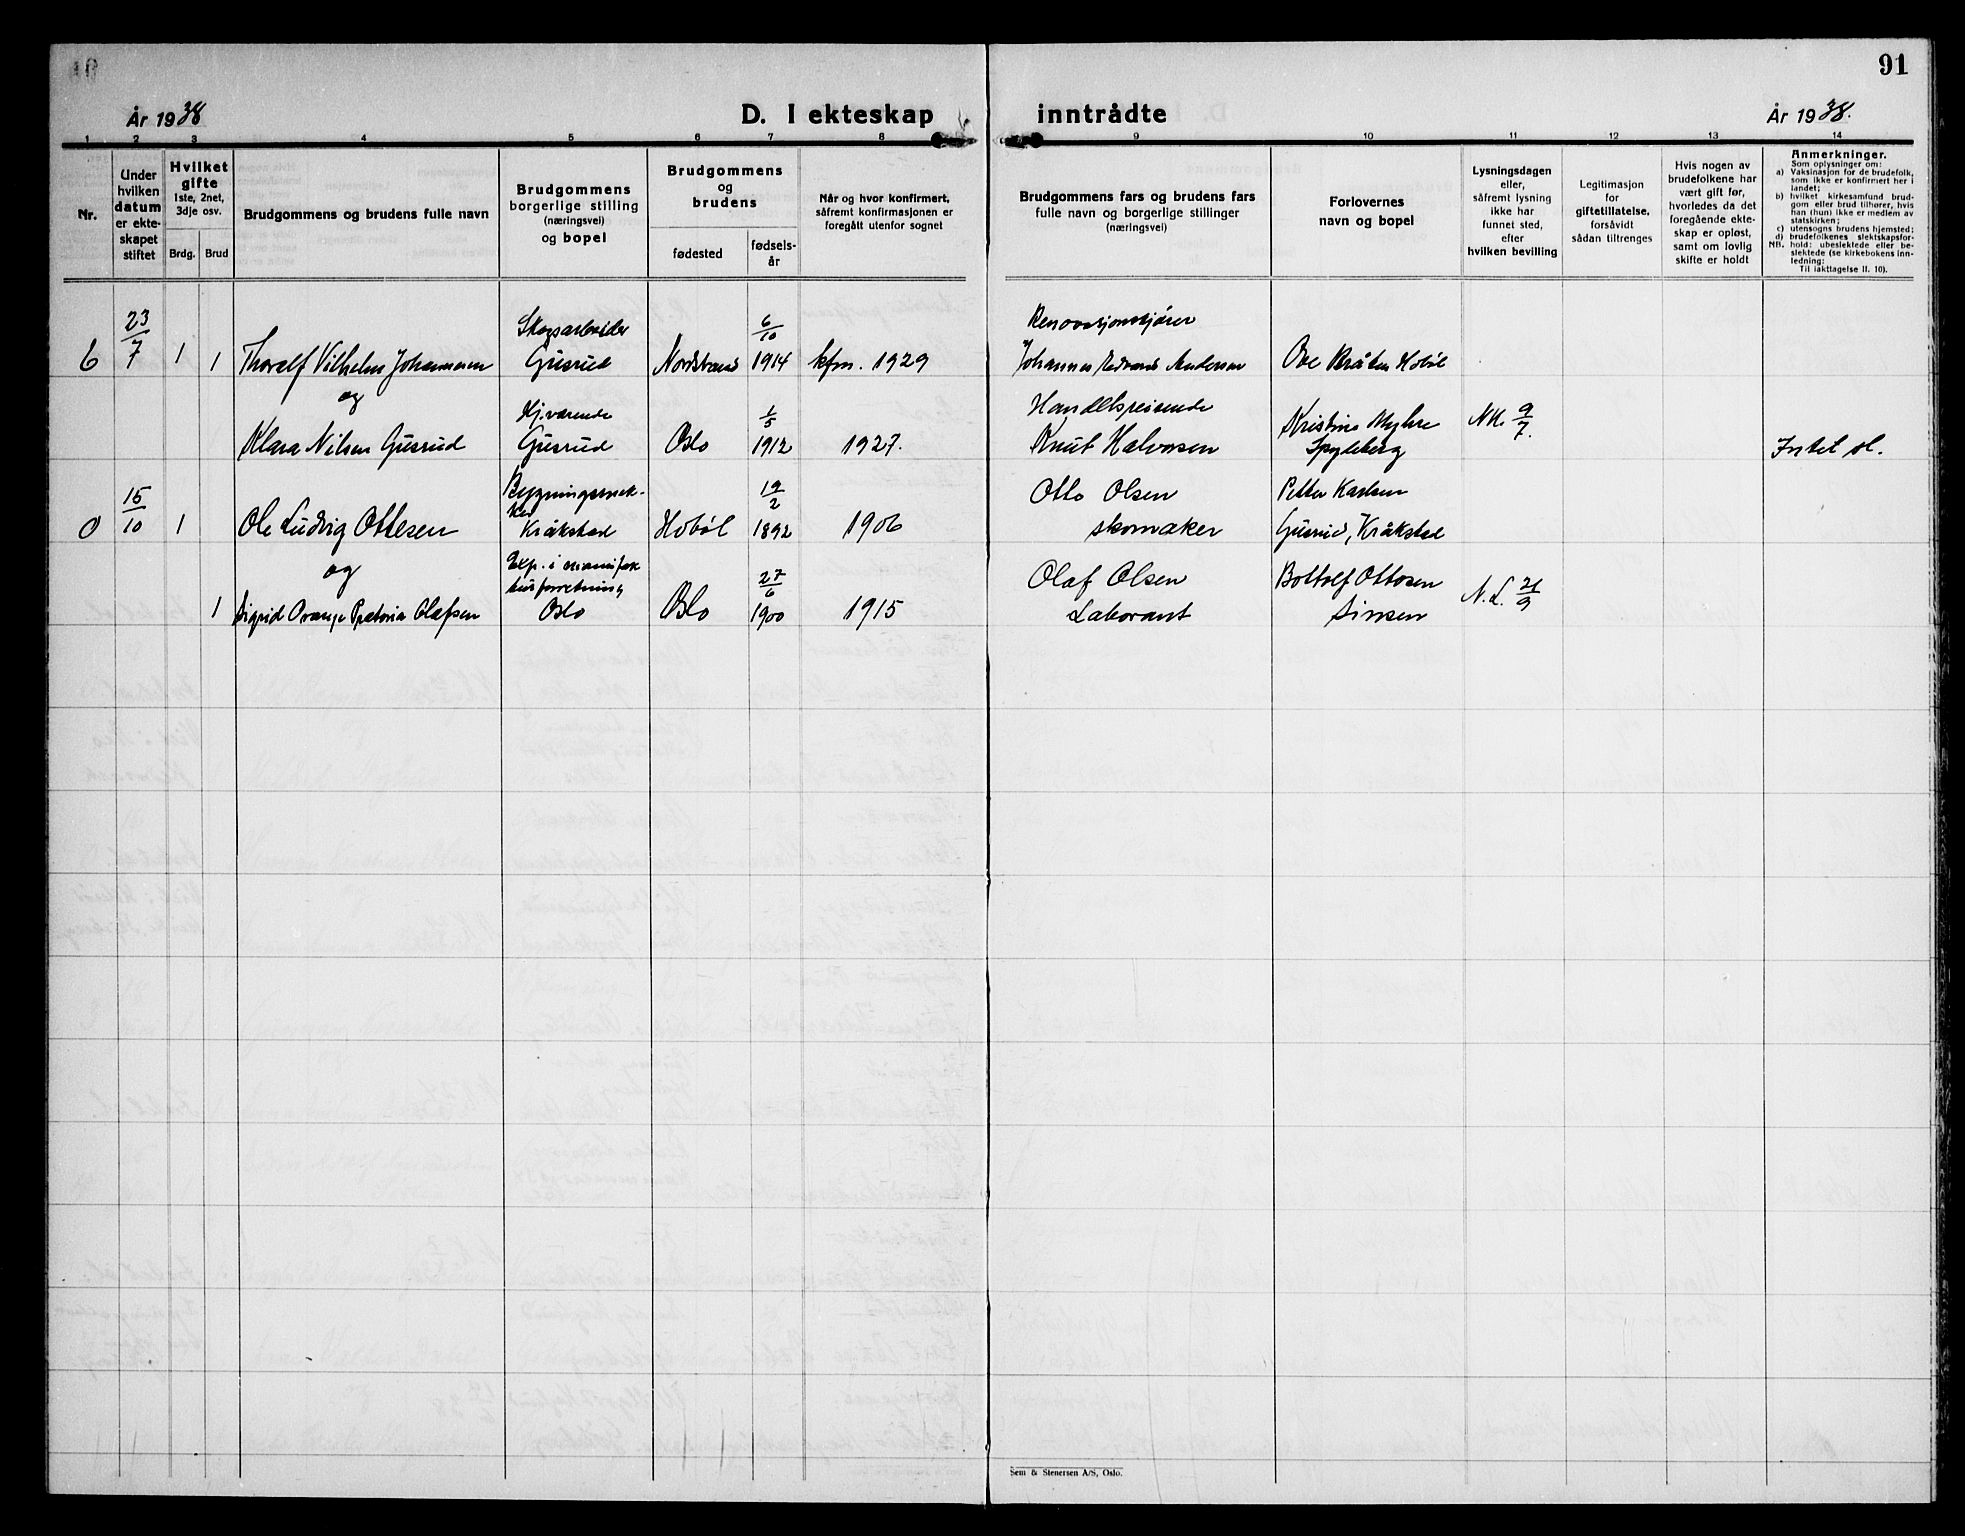 91
År 1938
D. I ekteskap inntrådte
År 1938.
1 2 3 4 5 6 7 8 9 10 11 12 13 14
Nr.
Under hvilken datum er ekteskapet stiftet
Hvilket gifte
1ste, 2net, 3dje osv.
Brdg. Brud
Brudgommens og brudens fulle navn
Brudgommens borgerlige stilling (næringsvei) og bopel
Brudgommens og brudens
fødested
fødselsår
Når og hvor konfirmert, såfremt konfirmasjonen er foregått utenfor sognet
Brudgommens fars og brudens fars fulle navn og borgerlige stillinger (næringsvei)
Forlovernes navn og bopel
Lysningsdagen eller, såfremt lysning ikke har funnet sted, efter hvilken bevilling
Legitimasjon for giftetillatelse, forsåvidt sådan tiltrenges
Hvis nogen av brudefolkene har vært gift før, hvorledes da det foregående ekteskap er opløst, samt om lovlig skifte er holdt
Anmerkninger.
Som oplysninger om:
a) Vaksinasjon for de brudefolk, som ikke er konfirmert her i landet;
b) hvilket kirkesamfund brudgom eller brud tilhører, hvis han (hun) ikke er medlem av statskirken;
c) utensogns brudens hjemsted;
d) brudefolkenes slektskapsforhold: ubeslektede eller beslektede (se kirkebokens innledning:
NB.
Til iakttagelse II. 10).
23/7 Skogsarbeider 6/10 Renovasjonskjører
6 1 1 Thoralf Vilhelm Johannesen Gusrud Nordstrand 1914 kfm. 1929 Johannes Edvard Andersen Ove Bråten Hobøl
og Hj.værende 1/5 Handelsreisende
Klara Nilsen Gusrud Gusrud Oslo 1912 1927. Knut Halvorsen Kristine Myhre Spydeberg 9/7. Intet sl.
15/10 Bygningssnekker 19/2 Otto Olsen Petter Karlsen
0 1 Ole Ludvig Ottesen Kråkstad Hobøl 1892 1906 skomaker Gusrud, Kråkstad
og Exp. i manufakturforretning 27/6 Olaf Olsen Bottolf Ottosen N.L. 21/9
1 Sigrid Orange Pretoria Olafsen Oslo Oslo 1900 1915 Laborant Sinsen
Sem & Stenersen A/S, Oslo.